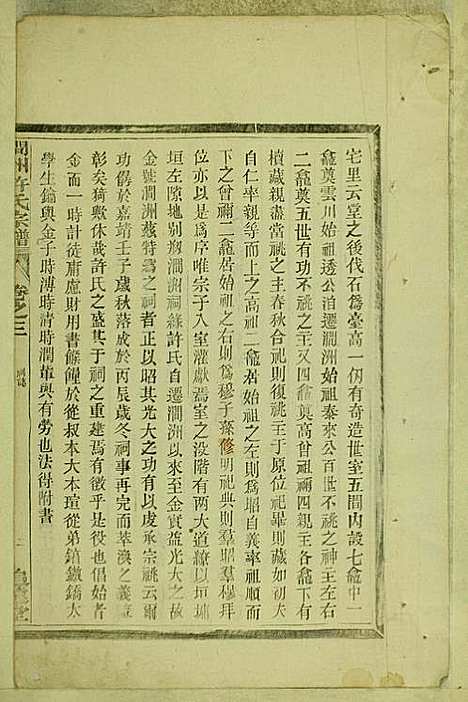 宅里云堂之後伐石為臺高一仞有奇造世室五間内設七龕中一
龕奠雲川始祖透公洎遷澗洲始祖泰來公百世不祧之神主左右
二龕奠五世有功不祧之主又四龕奠高曾祖禰四親主各龕下有
櫝藏親盡當祧之主春秋合祀則復祧主于原位祀畢則藏如初夫
自仁率親等而上之高祖二龕居始祖之左則為昭自義率祖順而
下之曾禰二龕居始祖之右則為穆子孫修明祀典則羣昭羣穆拜
位亦以是為序唯宗子入室灌獻焉室之没階有兩大道繚以垣墉
垣左隙地别剏澗洲祠緣許氏自遷澗洲以來至金實益光大之故
金號澗洲兹特為之祠者正以昭其光大之功有以虔承宗祧云爾
功僝於嘉靖壬子歲秋落成於丙辰歲冬祠事再完而萃渙之義益
彰矣猗歟休哉許氏之盛其于祠之重建焉有徵乎是役也倡始者
金而一時計徒庸慮財用書餱饎於從叔本大本瑄從弟鎮鐓鐈大
學生鏀與金子時溥時清時潤輩與有勞也法得附書
澗洲許氏宗譜
卷之三